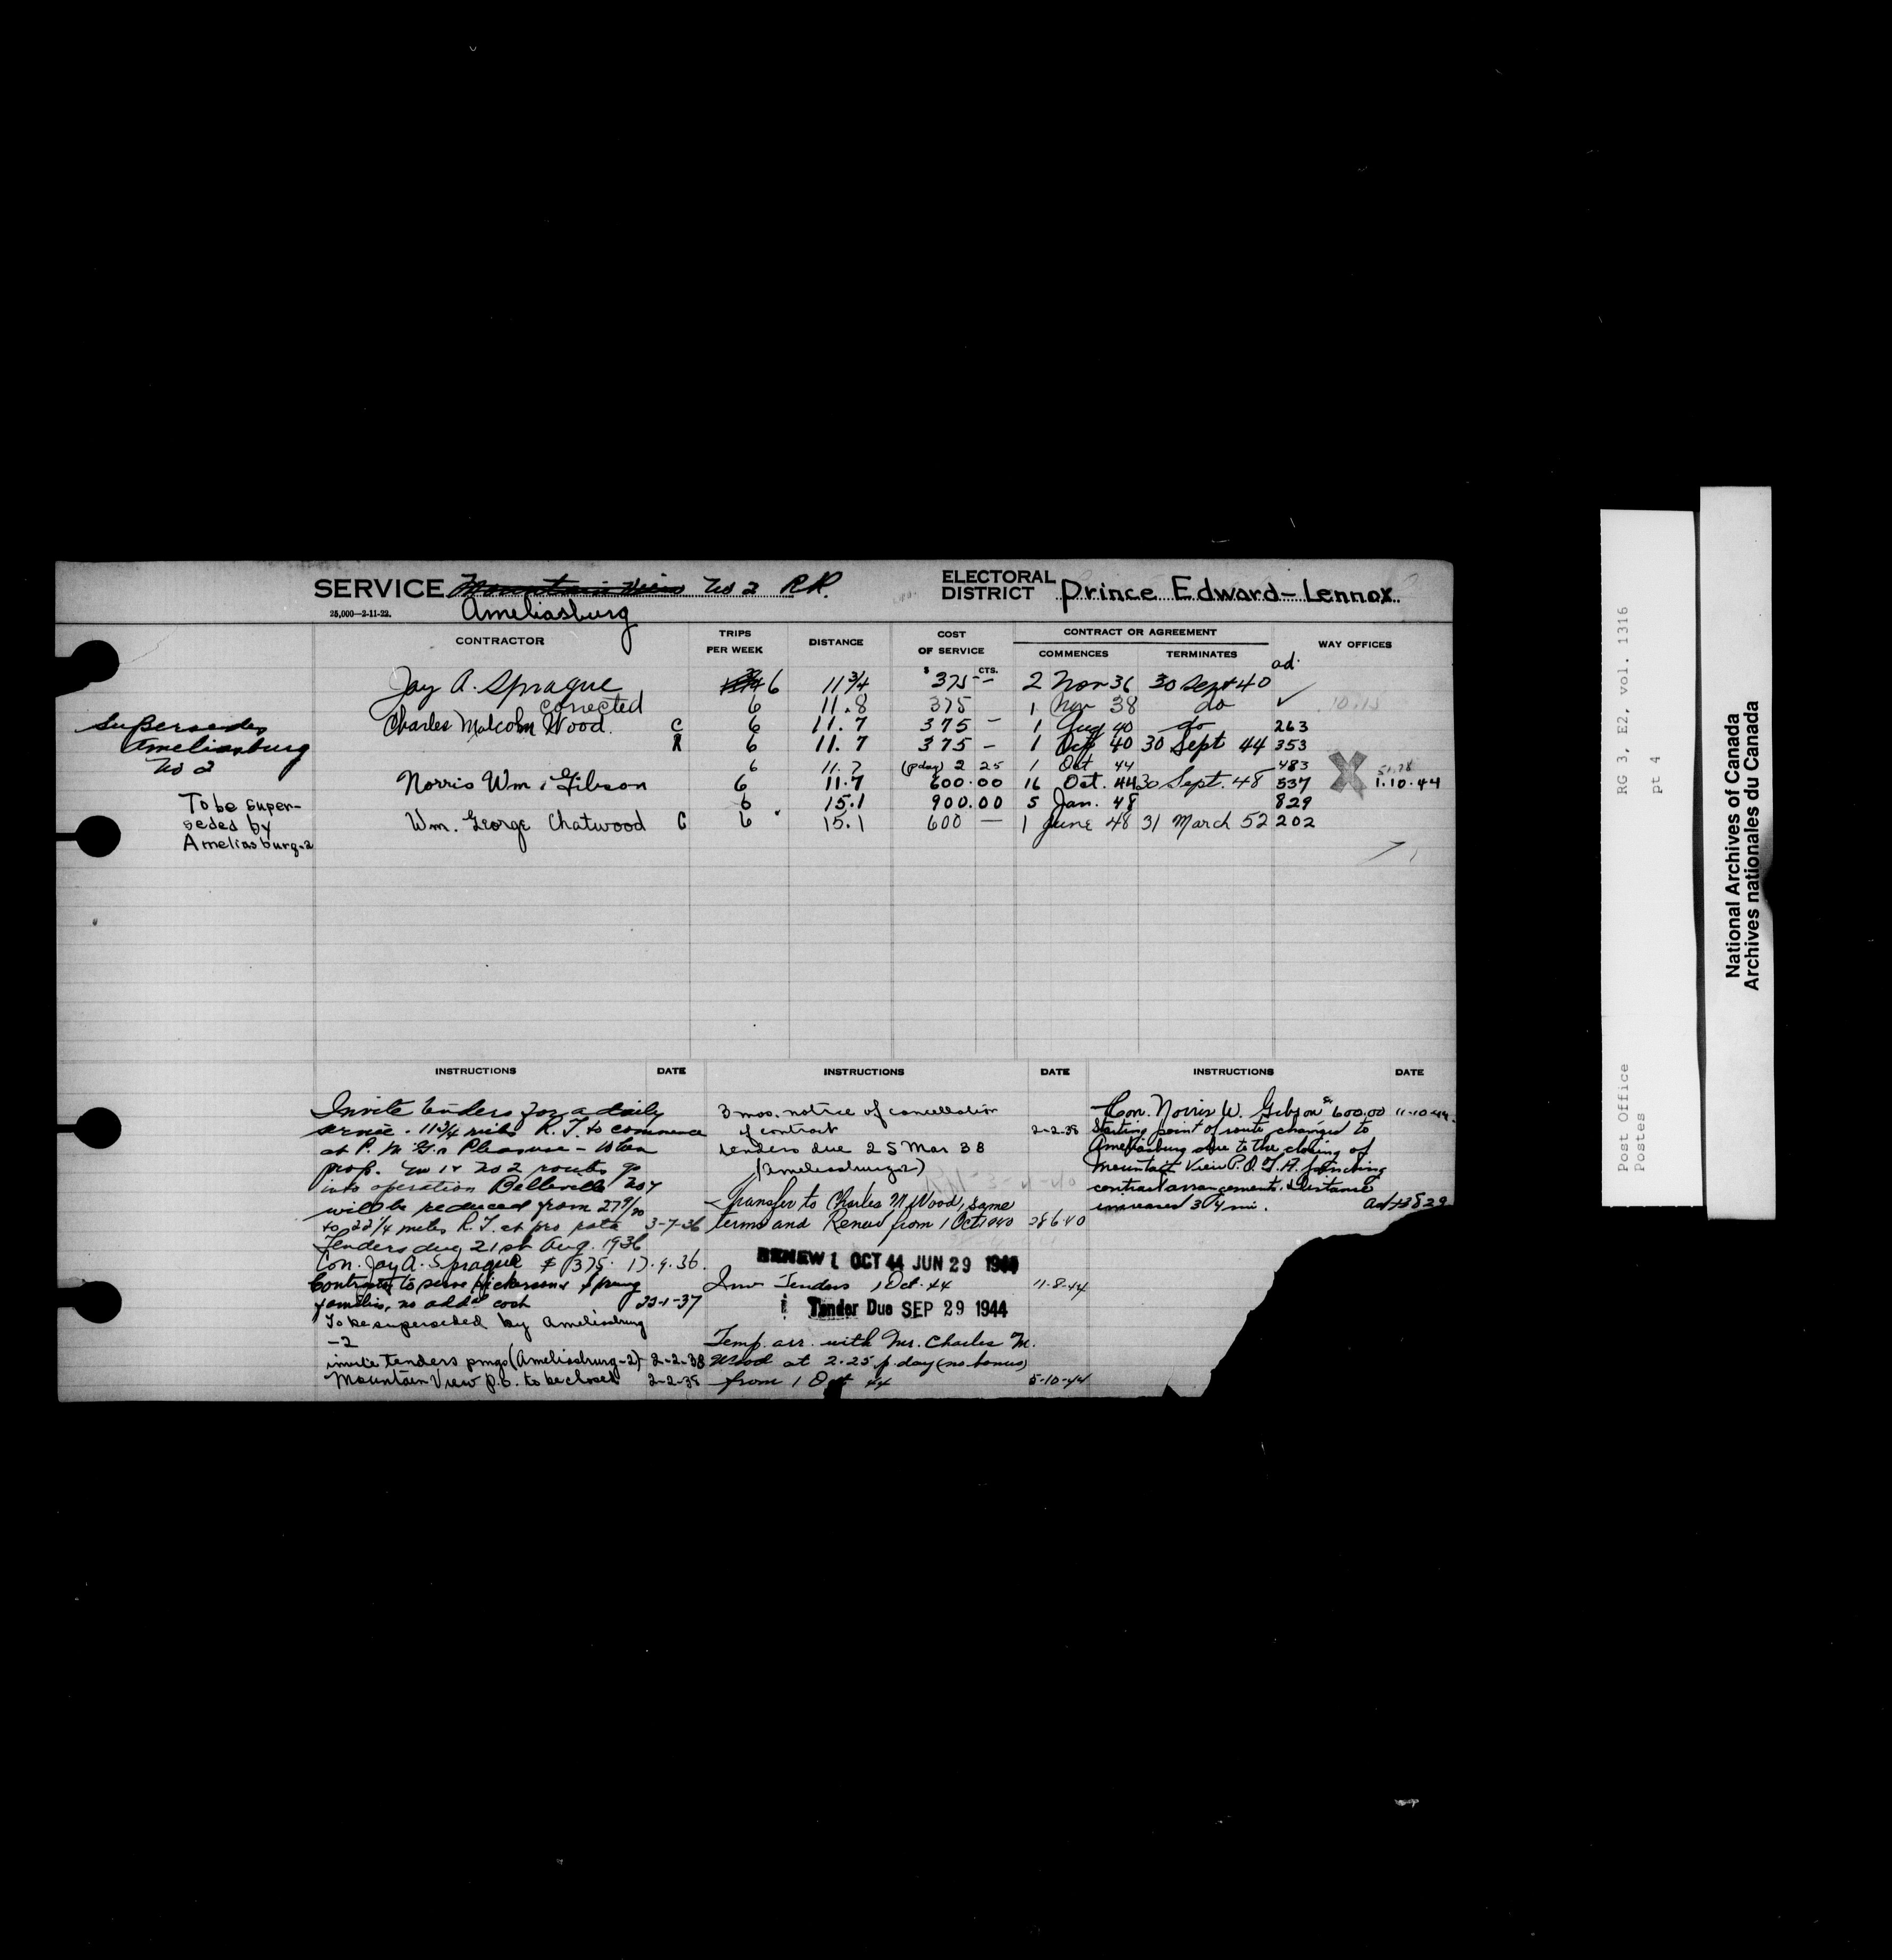 SERVICE Mountain View No 2 R.R.
Ameliasburg
25,000—2-11-22.
ELECTORAL DISTRICT Prince Edward-Lennox.
CONTRACTOR TRIPS PER WEEK DISTANCE COST OF SERVICE CONTRACT OR AGREEMENT COMMENCES TERMINATES WAY OFFICES
$ CTS. ad.
Jay A. Sprague 6 11 3/4 375 — 2 Nov 36 30 Sept 40
corrected 6 11.8 375 1 Nov 38 do ✓
Supersedes
Ameliasburg
No 2
Charles Malcolm Wood. C 6 11.7 375 — 1 Aug 40 do 263
R 6 11.7 375 — 1 Oct 40 30 Sept 44 353
6 11.7 (p day) 2 25 1 Oct 44 483
Norris Wm. Gibson 6 11.7 600.00 16 Oct. 44 30 Sept. 48 537 X 1.10.44
6 15.1 900.00 5 Jan. 48 829
Wm. George Chatwood C 6 15.1 600 — 1 June 48 31 March 52 202
To be super-
seded by
Ameliasburg-2
INSTRUCTIONS DATE INSTRUCTIONS DATE INSTRUCTIONS DATE
Invite tenders for a daily
service. 11 3/4 miles R.T. to commence
at P.M.G.'s Pleasure — When
prop. No 1 & No 2 routes go
into operation Belleville
will be reduced from
to 22 1/4 miles R.T. at pro rata 3-7-36
Tenders due 21st Aug. 1936
Con. Jay A. Sprague $375. 17.9.36.
Contractor to serve
families, no add'l cost 22-1-37
To be superseded by Ameliasburg
-2
invite tenders pmgs (Ameliasburg-2) 2-2-38
Mountain View P.O. to be closed 2-2-38
3 mos. notice of cancellation
of contract 2-2-38
tenders due 25 Mar 38
(Ameliasburg-2)
Transfer to Charles M. Wood, same
terms and Renew from 1 Oct 1940 28 6 40
RENEW 1 OCT 44 JUN 29 1944
Inv Tenders 1 Oct. 44 11-8-44
Tender Due SEP 29 1944
Temp. arr. with Mr. Charles M.
Wood at 2.25 p. day (no bonus)
from 1 Oct 44 5-10-44
Con. Norris W. Gibson $600.00 11-10-44.
Starting point of route changed to
Ameliasburg due to the closing of
Mountain View P.O.
contract arrangements. Distance
increased 3 3/4 mi.
RG 3, E2, vol. 1316
pt 4
Post Office
Postes
National Archives of Canada
Archives nationales du Canada